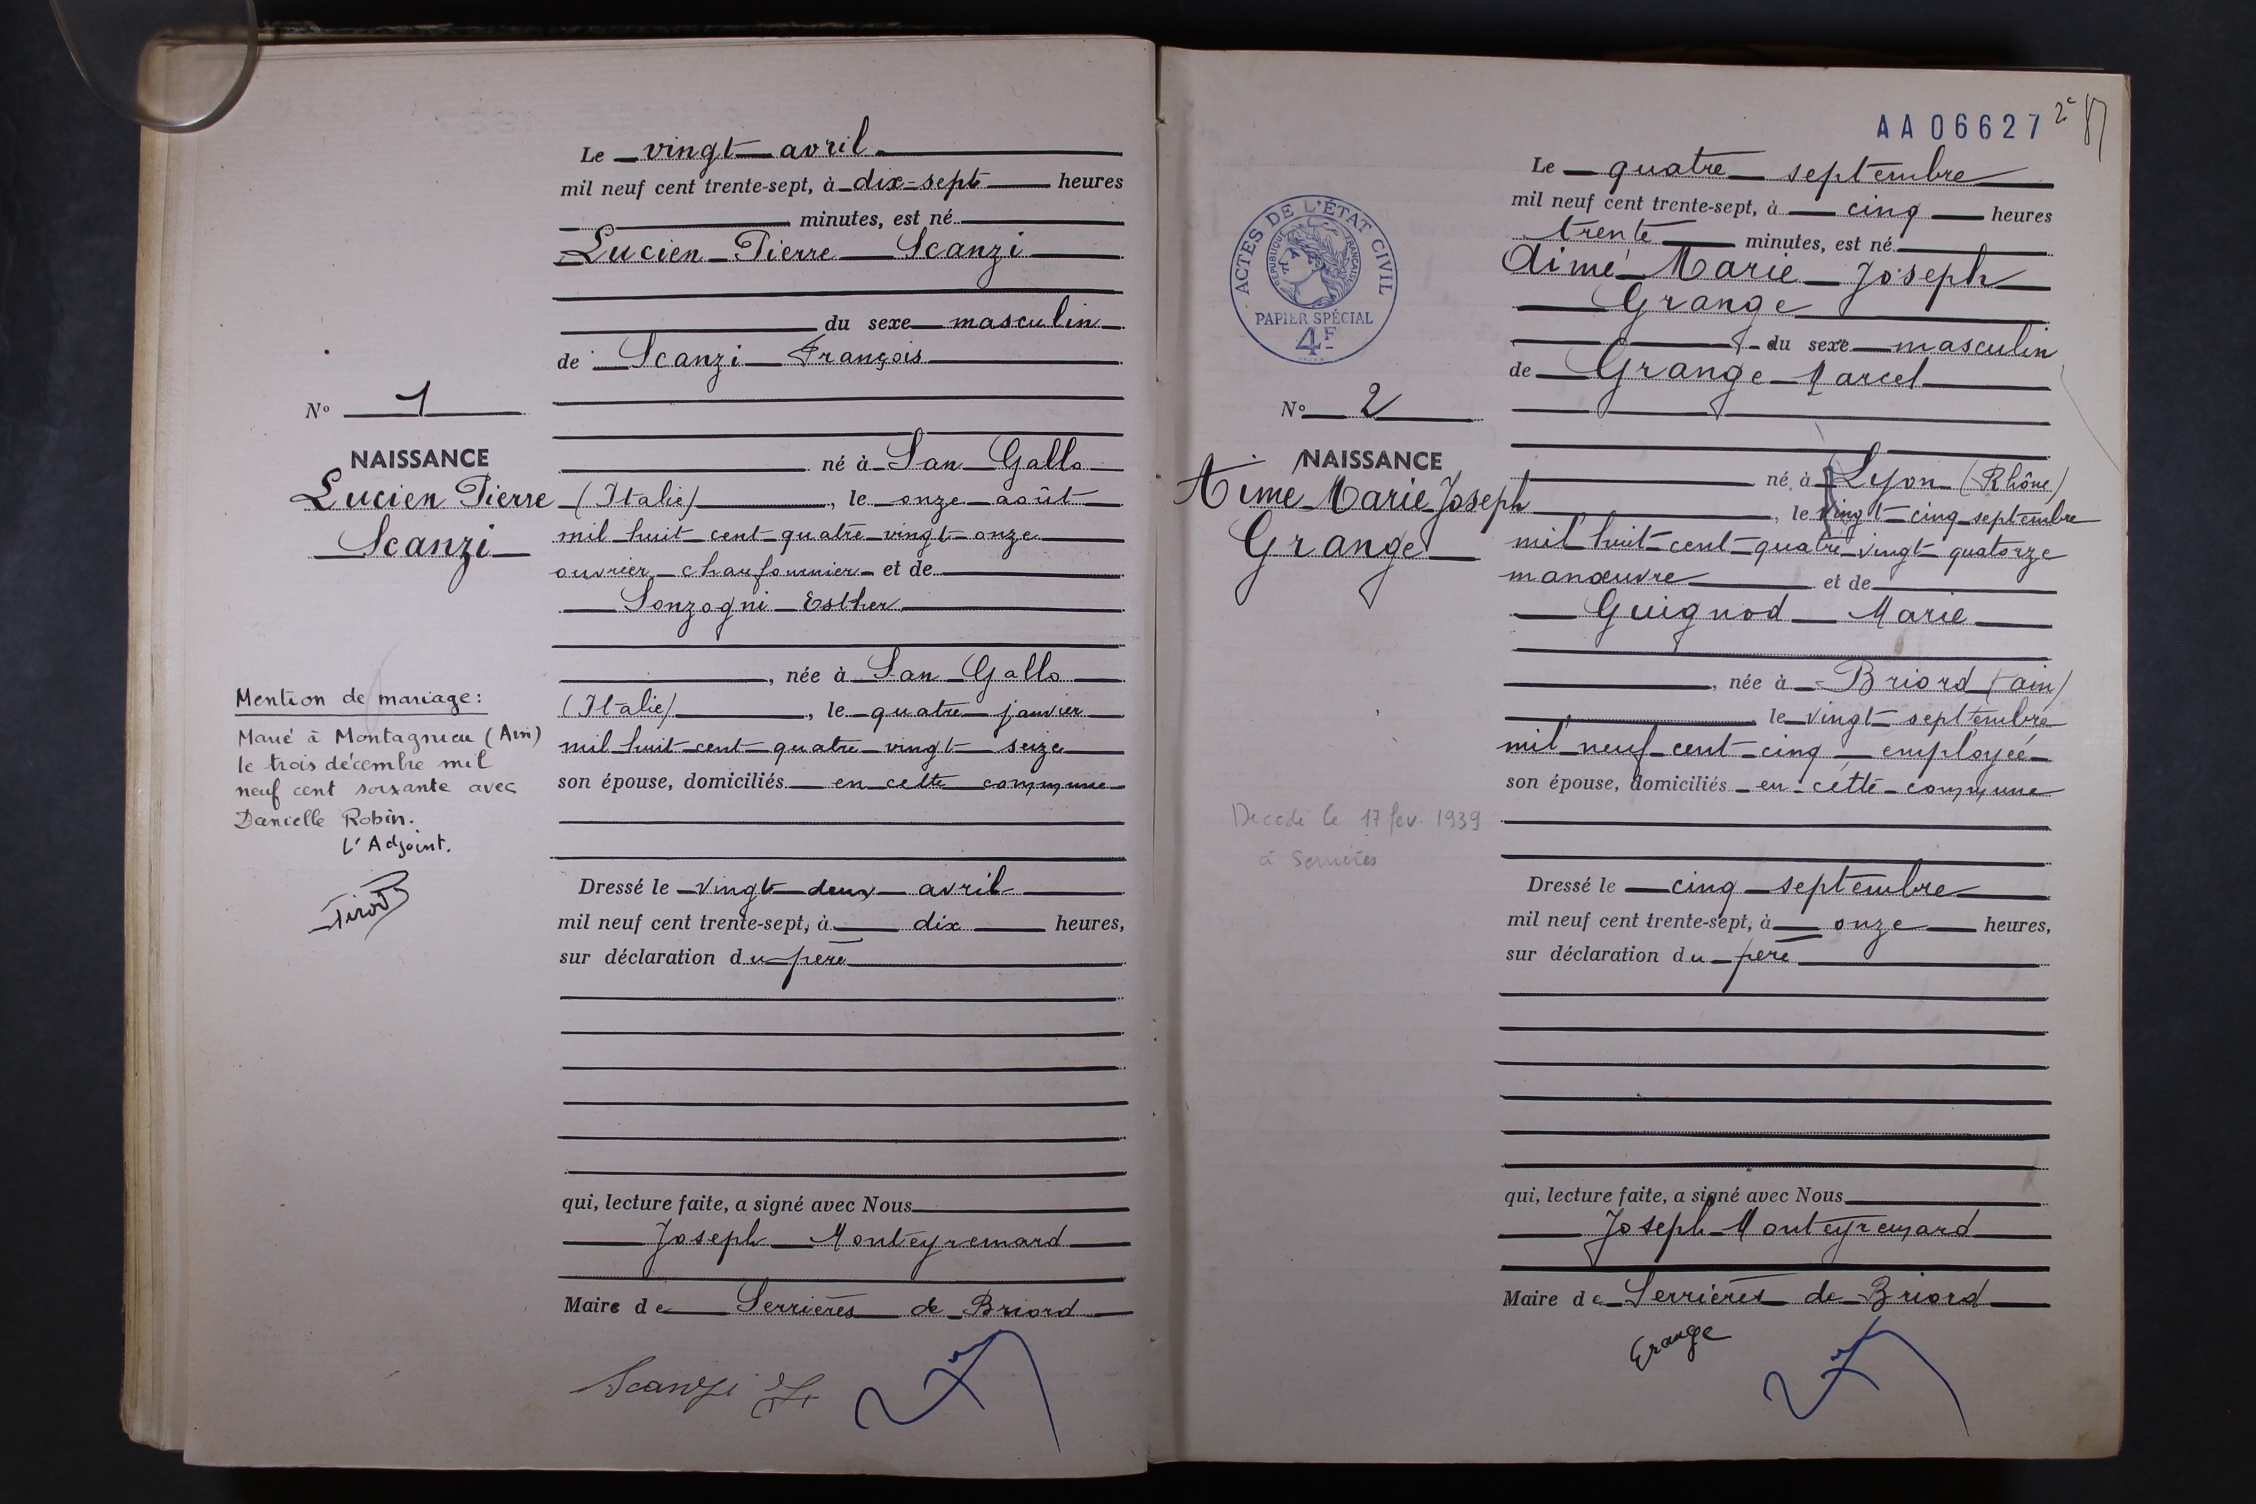 Le vingt avril
mil neuf cent trente-sept, à dix-sept heures
minutes, est né
Lucien Pierre Scanzi
du sexe masculin
de Scanzi François
N° 1
NAISSANCE
Lucien Pierre
Scanzi
né à San Gallo
(Italie), le onze août
mil huit cent quatre vingt onze
ouvrier chaufournier et de
Sonzogni Esther
, née à San Gallo
(Italie), le quatre janvier
mil huit cent quatre vingt seize
son épouse, domiciliés en cette commune
Mention de mariage:
Marié à Montagnieu (Ain)
le trois décembre mil
neuf cent soixante avec
Danielle Robin.
L'Adjoint.
Dressé le vingt deux avril
mil neuf cent trente-sept, à dix heures,
sur déclaration du père
qui, lecture faite, a signé avec Nous
Joseph Monteyremard
Maire de Serrières de Briord
Scanzi
AA06627
2e
Le quatre septembre
mil neuf cent trente-sept, à cinq heures
trente minutes, est né
Aimé Marie Joseph
Grange
du sexe masculin
de Grange Marcel
ACTES DE L'ÉTAT CIVIL
RÉPUBLIQUE FRANÇAISE
PAPIER SPÉCIAL
4F
N° 2
NAISSANCE
Aimé Marie Joseph
Grange
né à Lyon (Rhône)
, le vingt-cinq septembre
mil huit cent quatre vingt quatorze
manœuvre et de
Guignod Marie
, née à Briord (ain)
le vingt septembre
mil neuf cent cinq employée
son épouse, domiciliés en cette commune
Décédé le 17 fev. 1939
à Serrières
Dressé le cinq septembre
mil neuf cent trente-sept, à onze heures,
sur déclaration du père
qui, lecture faite, a signé avec Nous
Joseph Monteyremard
Maire de Serrières de Briord
Grange